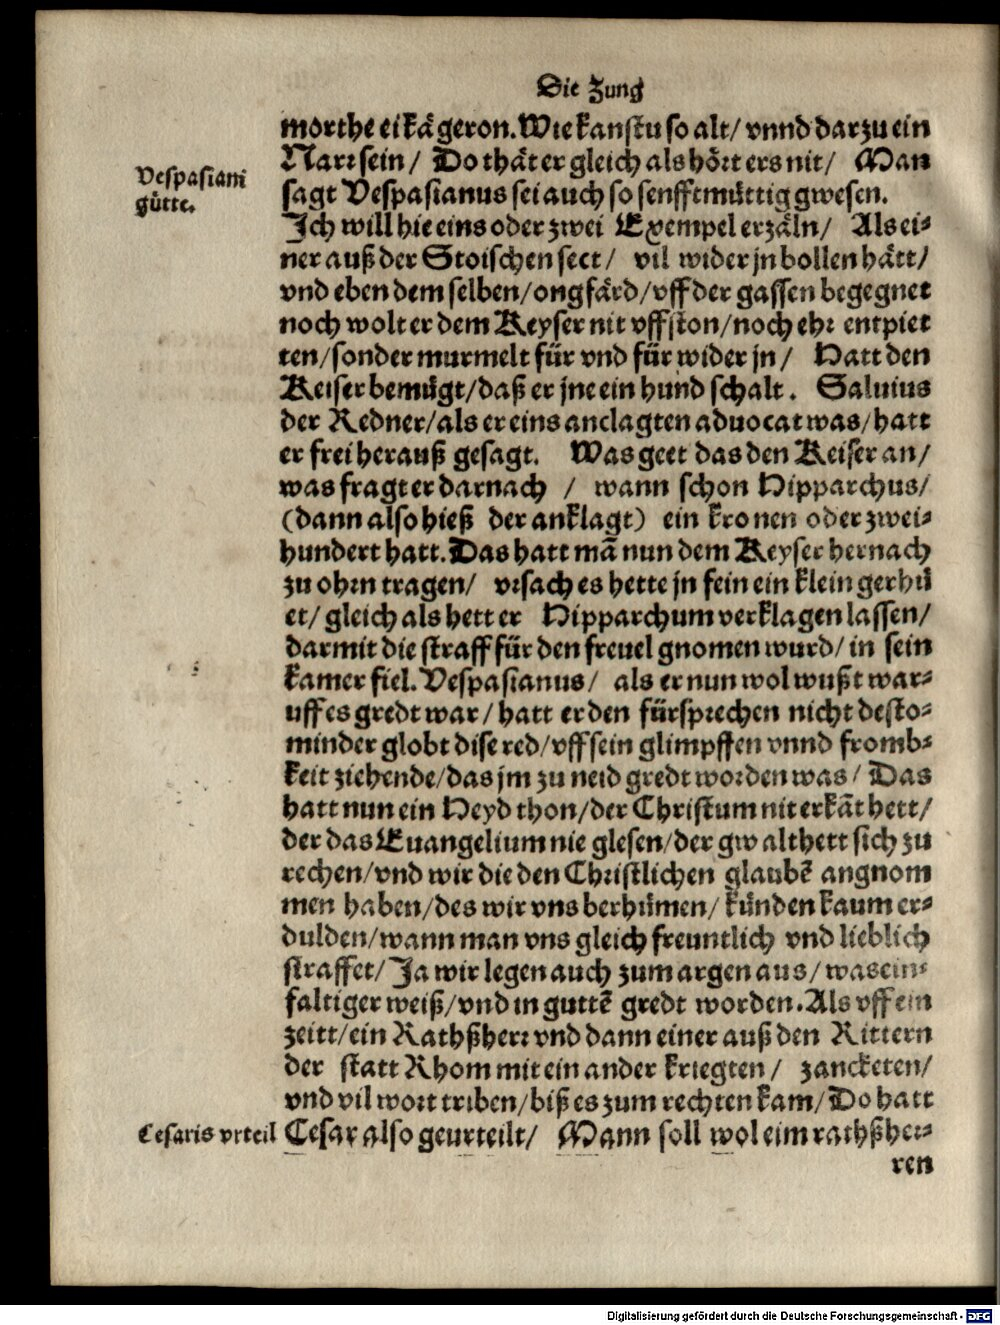 Die Zung
morthe ei kā geron. Wie kanstu so alt/ vnnd darzu ein
Narr sein/ Do thät er gleich als hört ers nit/ Man
Vespasiani
gütte.
sagt Vespasianus sei auch so senfftmüttig gwesen.
Ich will hie eins oder zwei Exempel erzäln/ Als ei-
ner auß der Stoischen sect/ vil wider jn bollen hätt/
vnd eben dem selben/ ongfärd/ vff der gassen begegnet
noch wolt er dem Keyser nit vffston/ noch ehr entpiet
ten/ sonder murmelt für vnd für wider jn/ Hatt den
Keiser bemügt/ daß er jne ein hund schalt. Saluius
der Redner/ als er eins anclagten aduocat was/ hatt
er frei herauß gesagt. Was geet das den Keiser an/
was fragt er darnach / wann schon Hipparchus/
(dann also hieß der anklagt) ein kronen oder zwei-
hundert hatt. Das hatt mā nun dem Keyser hernach
zu ohrn tragen/ vrsach es hette jn fein ein klein gerhü
et/ gleich als hett er Hipparchum verklagen lassen/
darmit die straff für den freuel gnomen wurd/ in sein
kamer fiel. Vespasianus/ als er nun wol wußt war-
uff es gredt war/ hatt er den fürsprechen nicht desto-
minder globt dise red/ vff sein glimpffen vnnd fromb-
keit ziehende/ das jm zu neid gredt worden was/ Das
hatt nun ein Heyd thon/ der Christum nit erkāt hett/
der das Euangelium nie glesen/ der gwalt hett sich zu
rechen/ vnd wir die den Christlichen glaubē angnom
men haben/ des wir vns berhümen/ künden kaum er-
dulden/ wann man vns gleich freuntlich vnd lieblich
straffet/ Ja wir legen auch zum argen aus/ was ein-
faltiger weiß/ vnd in guttē gredt worden. Als vff ein
zeitt/ ein Rathßherr vnd dann einer auß den Rittern
der statt Rhom mit ein ander kriegten/ zancketen/
vnd vil wort triben/ biß es zum rechten kam/ Do hatt
Cesaris vrteil
Cesar also geurteilt/ Mann soll wol eim rathßher-
ren
Digitalisierung gefördert durch die Deutsche Forschungsgemeinschaft - DFG